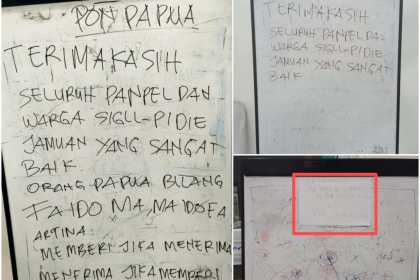 PON PAPUA
TERIMAKASIH
SELURUH PANPEL DAN
WARGA SIGLI-PIDIE
JAMUAN YANG SANGAT
BAIK
ORANG PAPUA BILANG
FAIDO MA, MAIDO FA
ARTINA:
MEMBERI JIKA MENERIMA
MENERIMA JIKA MEMBERI
TERIMAKASIH
SELURUH PANPEL DAN
WARGA SIGLI-PIDIE
JAMUAN YANG SANGAT
BAIK